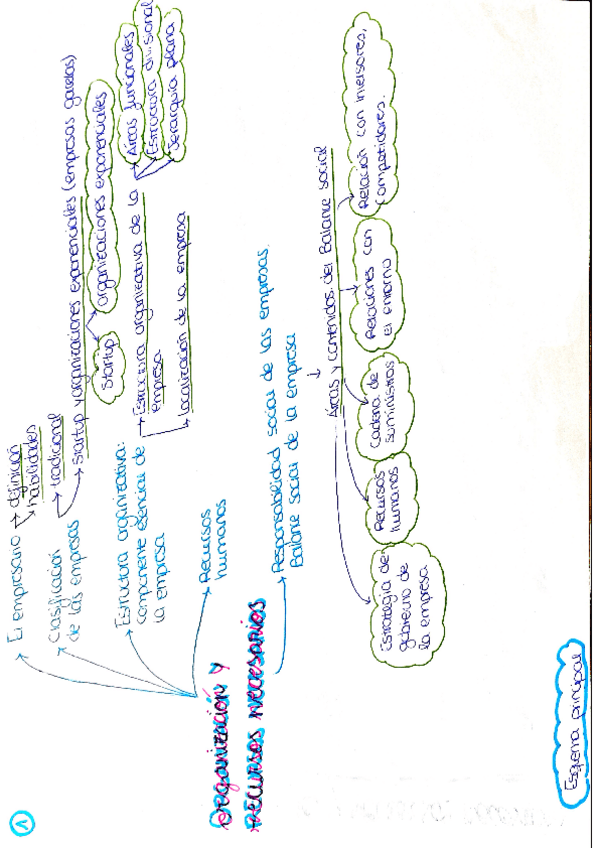 1
El empresario
definición
habilidades
Clasificación
de las empresas
tradicional
Startup y organizaciones exponenciales (empresas gacelas)
Startup
organizaciones exponenciales
Estructura organizativa:
componente esencial de
la empresa
Estructura organizativa de la
empresa
Áreas funcionales
Estructura divisional
Jerarquía plana
Localización de la empresa
Recursos
humanos
organización y
recursos necesarios
Responsabilidad social de las empresas.
Balance social de la empresa
Áreas y contenidos del Balance social
Estrategia de
gobierno de
la empresa
Recursos
humanos
Cadena de
suministros
Relaciones con
el entorno
Relación con inversores,
competidores.
Esquema principal